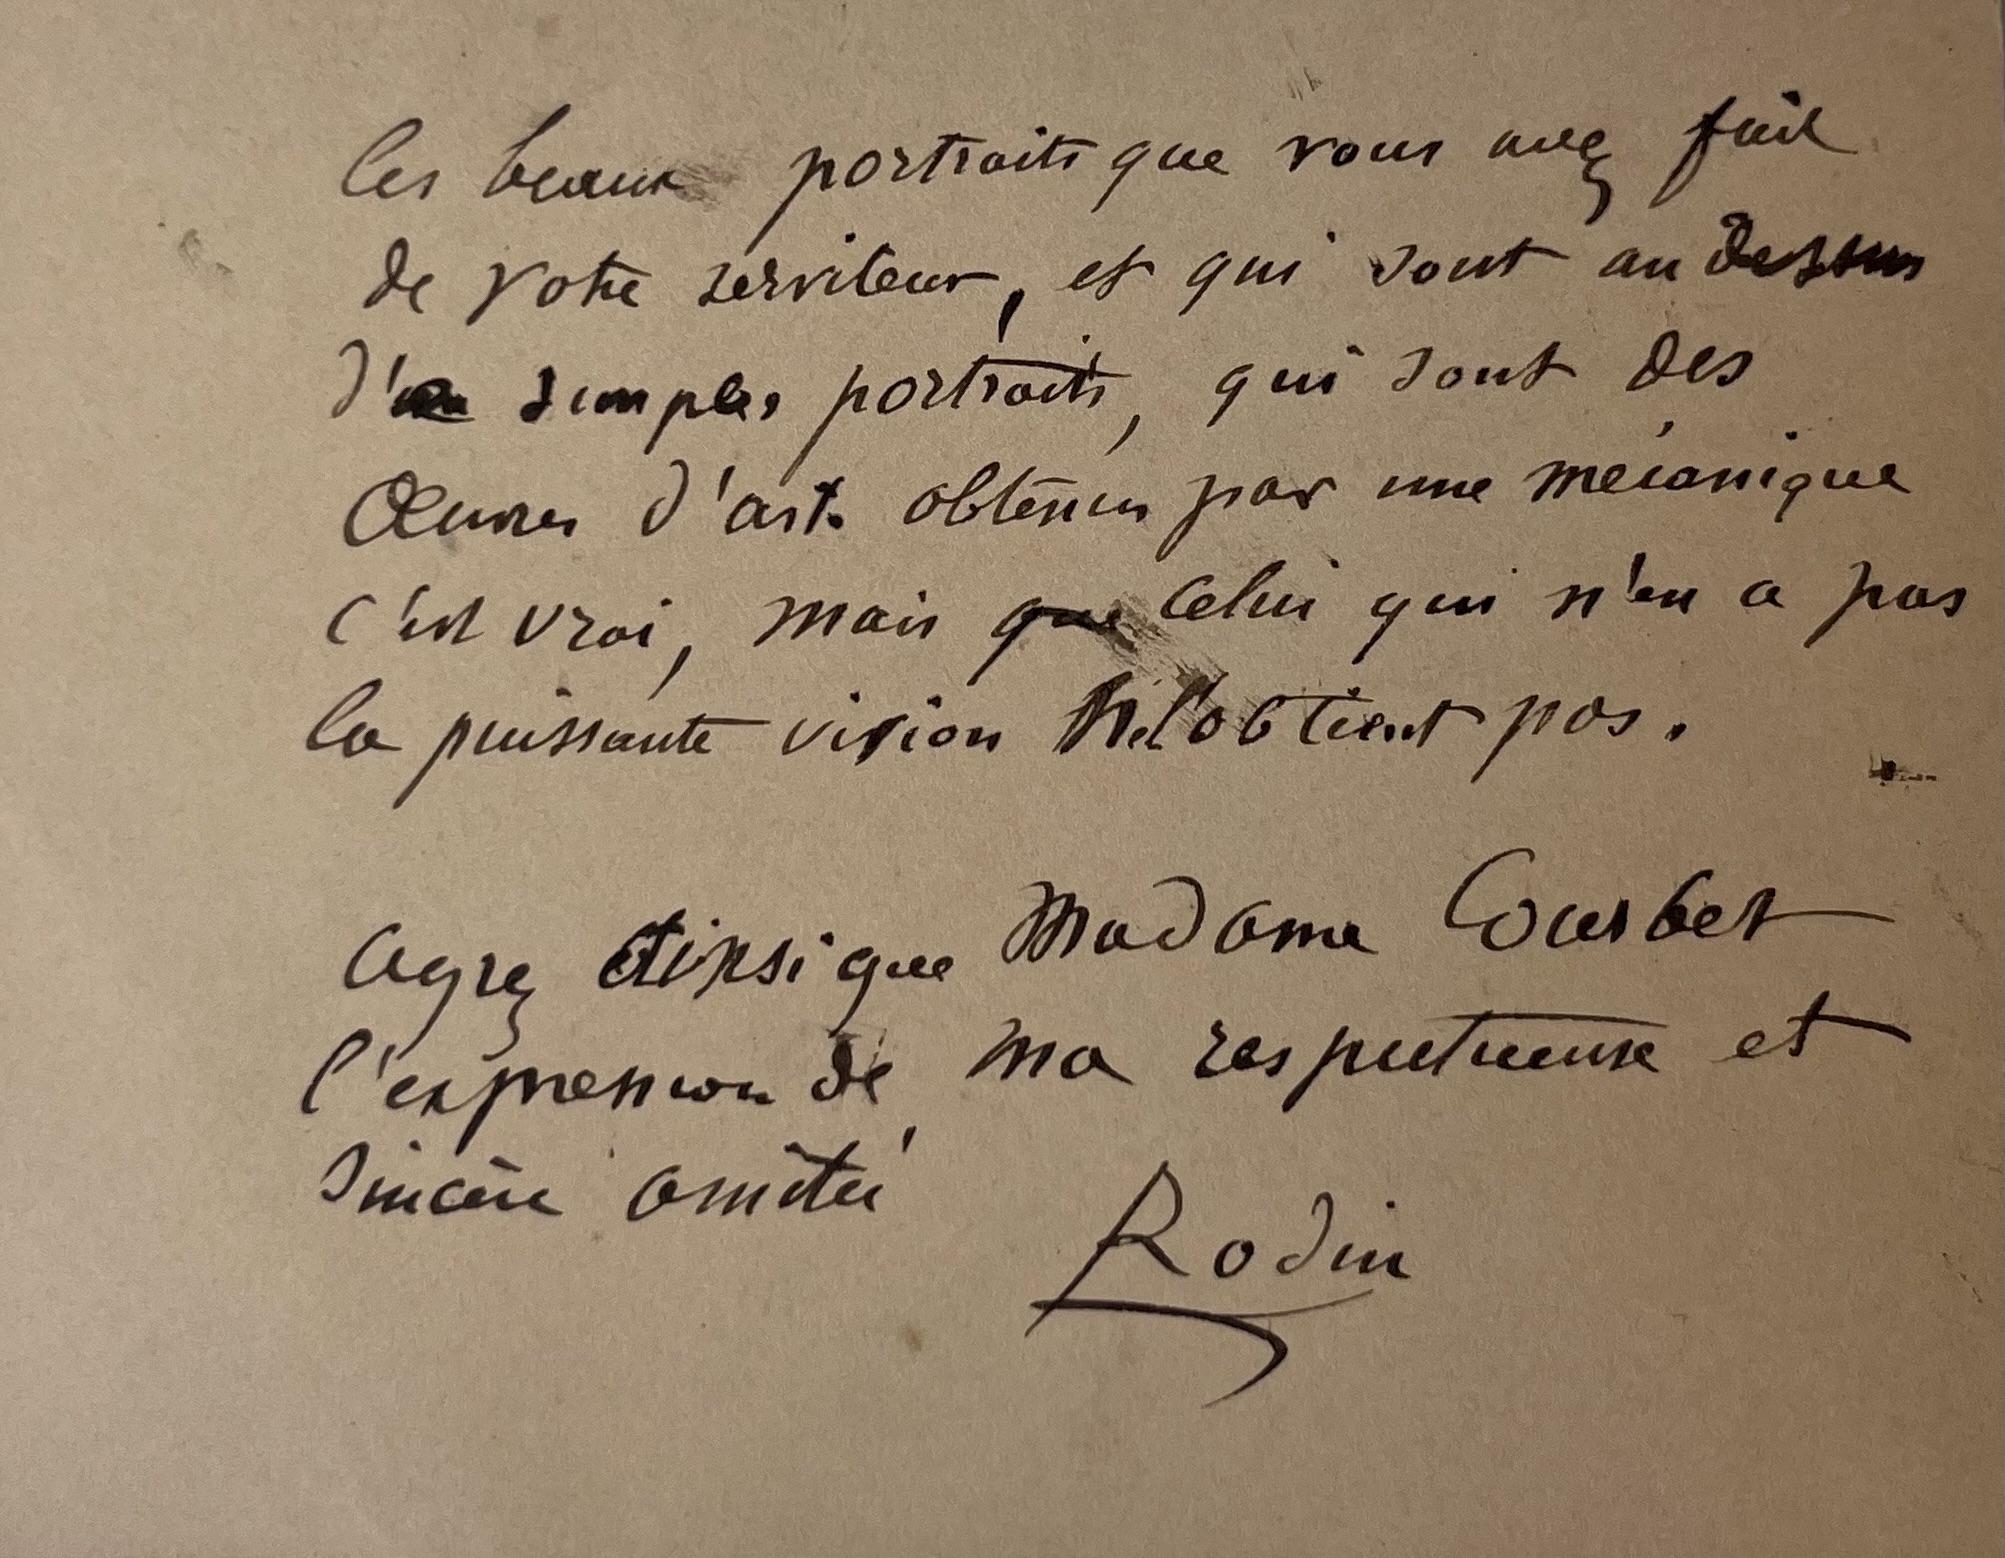 les beaux portraits que vous avez fait
de votre serviteur, et qui sont au dessus
d' simples portraits, qui sont des
Œuvres d'art. obtenus par une mécanique
c'est vrai, mais que celui qui n'en a pas
la puissante vision ne l'obtient pas.
Agrez ainsi que Madame Courbet
l'expression de ma respectueuse et
sincère amitié
Rodin